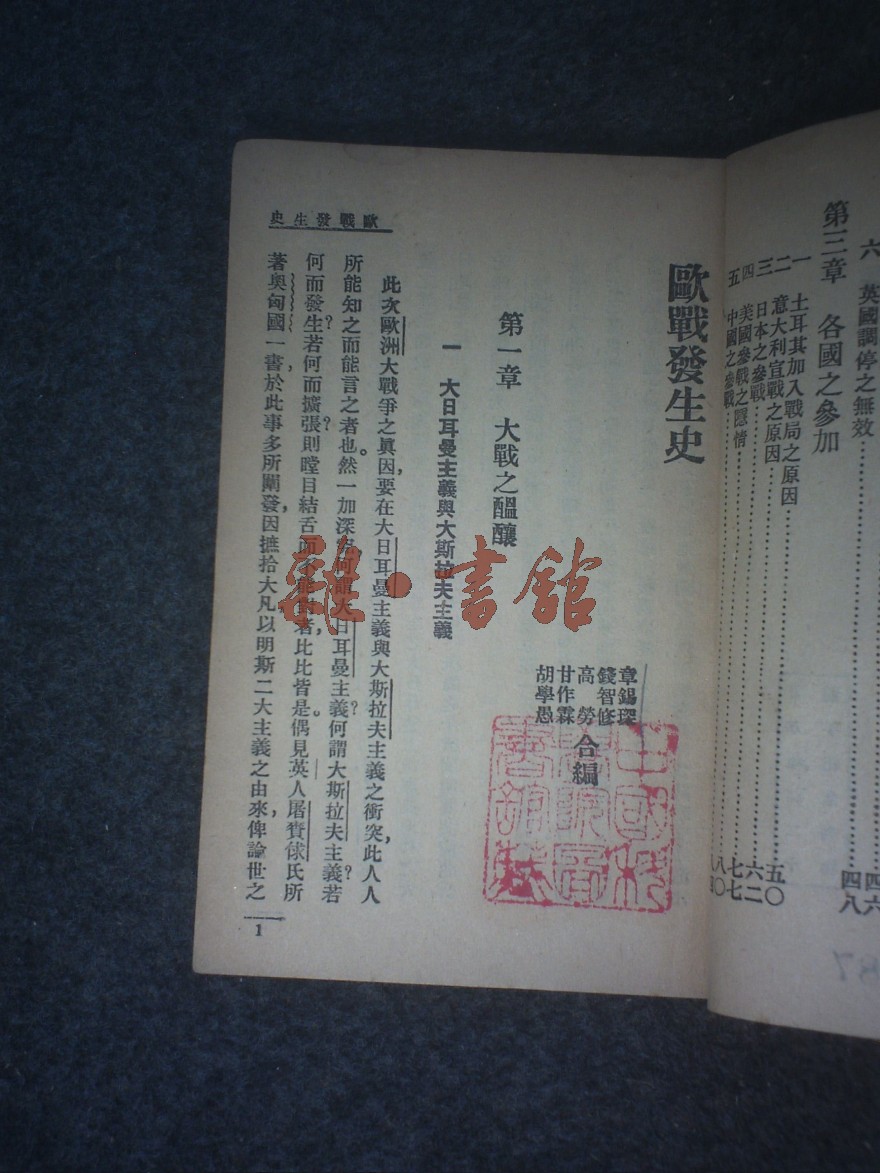 六 英國調停之無效 四六
第三章 各國之參加 四八
一 土耳其加入戰局之原因
二 意大利宣戰之原因 五〇
三 日本之參戰 六二
四 美國參戰之隱情 七七
五 中國之參戰
歐戰發生史
章錫琛
錢智修
高勞
甘作霖
胡學愚
合編
第一章 大戰之醞釀
一 大日耳曼主義與大斯拉夫主義
此次歐洲大戰爭之眞因，要在大日耳曼主義與大斯拉夫主義之衝突，此人人
所能知之而能言之者也。然一加深究，何謂大日耳曼主義？何謂大斯拉夫主義？若
何而發生？若何而擴張？則瞠目結舌而不能對者，比比皆是。偶見英人屠賚俅氏所
著奧匈國一書，於此事多所闡發，因摭拾大凡，以明斯二大主義之由來，俾論世之
歐戰發生史
1
雜·書館
87